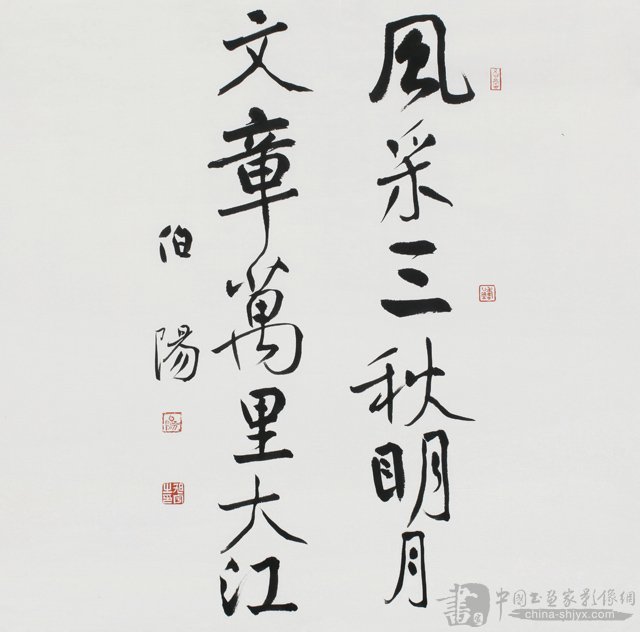 風采三秋明月
文章萬里大江
伯陽
中國书画家影像網
china-shjyx.com